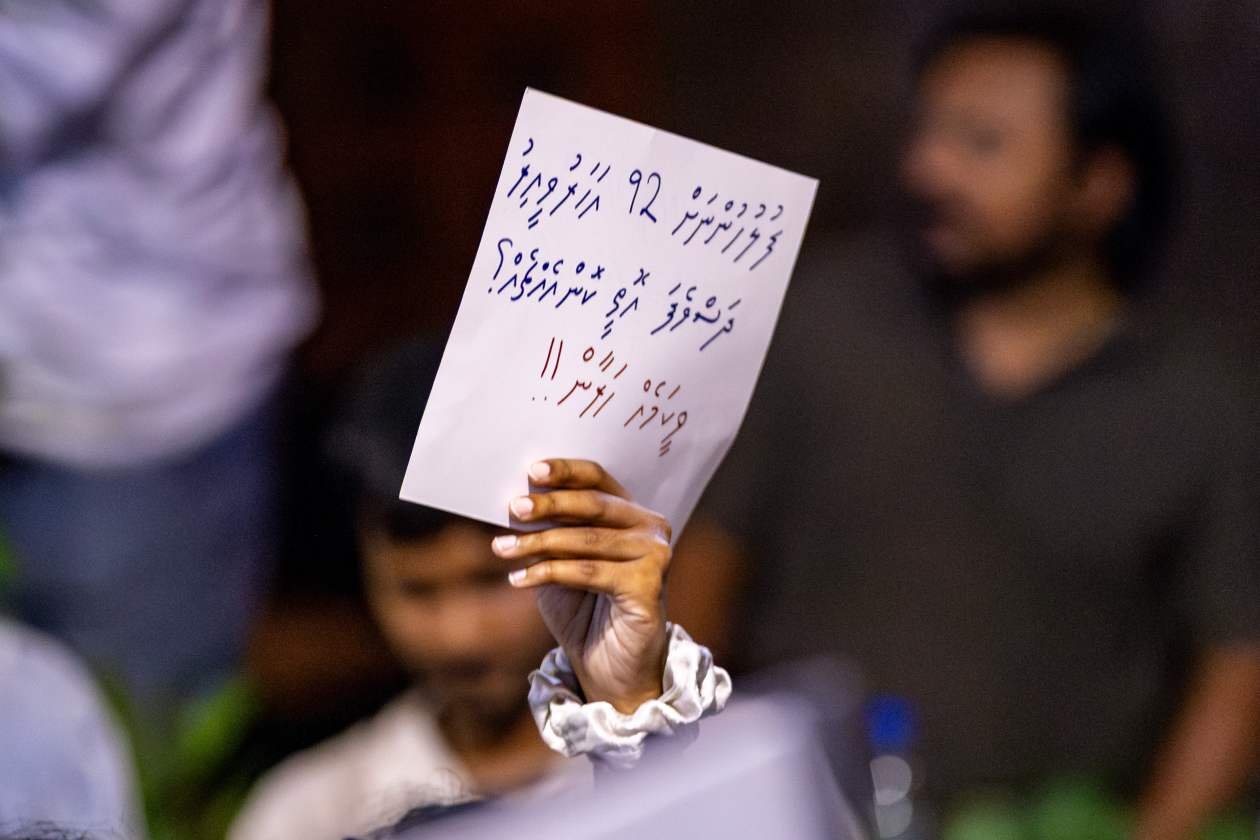 ފުލުހުންނަށް 92 އަހަރުވީއިރު
ދަސްވެފަ އޮތީ ކޮންއެއްޗެއް؟
ވީކަމެއް ހަރާން!!